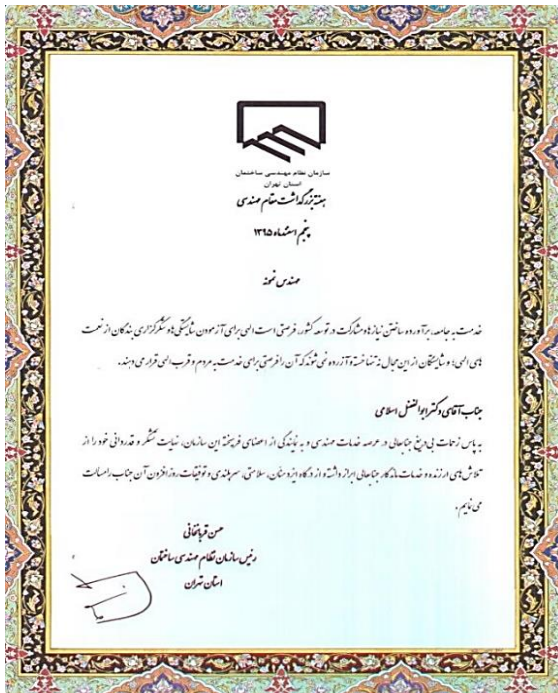 سازمان نظام مهندسی ساختمان
استان تهران
هفته بزرگداشت مقام مهندسی
پنجم اسفندماه ۱۳۹۵
مهندس نمونه
خدمت به جامعه، برآورده ساختن نیازها و مشارکت در توسعه کشور، فرصتی است الهی برای آزمودن شایستگی ها و شکرگزاری بندگان از نعمت
های الهی؛ و شایستگان از این مجال نه تنها خسته و آزرده نمی شوند که آن را فرصتی برای خدمت به مردم و قرب الهی قرار می دهند.
جناب آقای دکتر ابوالفضل اسلامی
به پاس زحمات بی دریغ جنابعالی در عرصه خدمات مهندسی و به نمایندگی از اعضای فرهیخته این سازمان، نهایت تشکر و قدردانی خود را از
تلاش های ارزنده و خدمات ماندگار جنابعالی ابراز داشته و از درگاه ایزد منان، سلامتی، سربلندی و توفیقات روزافزون آن جناب را مسالت
می نمایم.
حسن قربانخانی
رئیس سازمان نظام مهندسی ساختمان
استان تهران